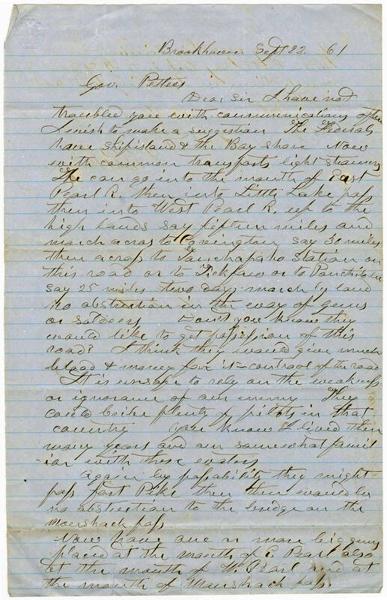 Brookhaven Sept 22 61
Gov. Pettus
Dear Sir I have not
troubled you with communications often
I wish to make a suggestion The Federals
have Ship island & the Bay shore Now
with common transports light steamers
He can go into the mouth of East
Pearl R. then into Little Lake pass
then into West Pearl R. up to the
high lands say fifteen miles and
march across to Covington say 30 miles
then across to Tanchapaho Station on
this road or to Tickfaw or to Ponchatoula
say 25 miles two days march by land
no obstruction in the way of guns
or soldiers Don't you know they
would like to get possession of this
road? I think they would give much
blood & money for it & control of the road
It is unsafe to rely on the weakness
or ignorance of our enemy They
can to bribe plenty of pilots in that
country You know I lived there
many years and am somewhat famil
iar with these waters
Again by possibility they might
pass fort Pike then there would be
no obstruction to the bridge on the
Manshack pass
Now have one or more big guns
placed at the mouth of E Pearl also
at the mouth of W. Pearl and at
the mouth of Manshack pass